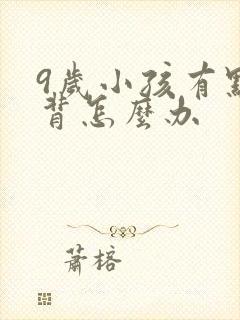 9歲小孩有點
背怎麼办
蕭榕